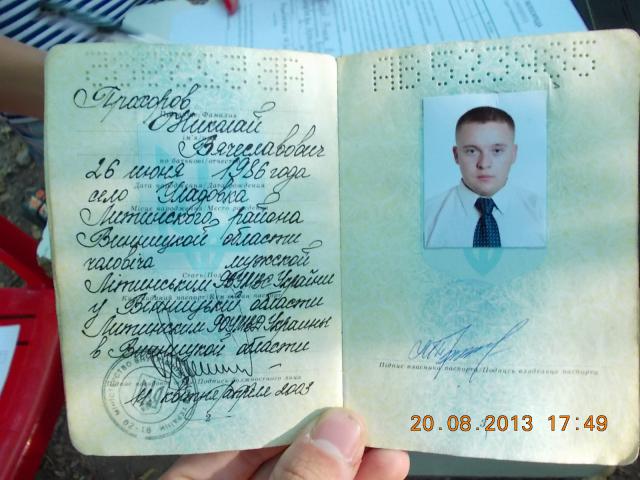 Прохоров
Прізвище/Фамилия
Николай
Вячеславович
по батькові/отчество
26 июня 1986 года
Дата народження/Дата рождения
село Сладовка
Місце народження/Место рождения
Литинского района
Винницкой области
чоловіча мужской
Стать/Пол
Літинським РВУМВС України
у Вінницькій області
Литинским РОУМВД Украины
в Винницкой области
Підпис посадової особи/Подпись должностного лица
11 квітня/апреля 2003
Підпис власника паспорта/Подпись владельца паспорта
20.08.2013 17:49